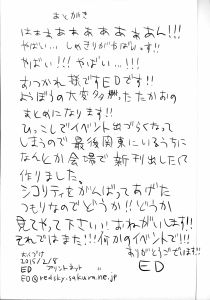 あとがき
はぁぁぁぁぁぁぁぁん!!!
やばい… しめきりがやばいっす!!
やばい!!! やばい…!!!
おつかれ様ですEDです!!
まとめになります!!
ひっこしでイベント出づらくなって
しまうので最後関東にいるうちに
なんとか会場で新刊出したくて
作りました。
シコリティをがんばってあげた
つもりなのでどうか!!どうか
見てやって下さい!!おねがいします!!
それではまた!!!何かのイベントで!!
ありがとうございます!!!
ED
おくづけ
2015/2/8
ED プリントネット
ED@redsky.sakura.ne.jp